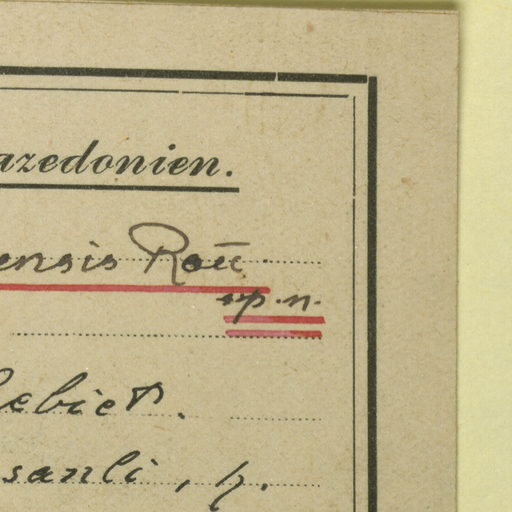 azedonien.
ensis Roū
sp. n.
ebiet.
sanli, h.